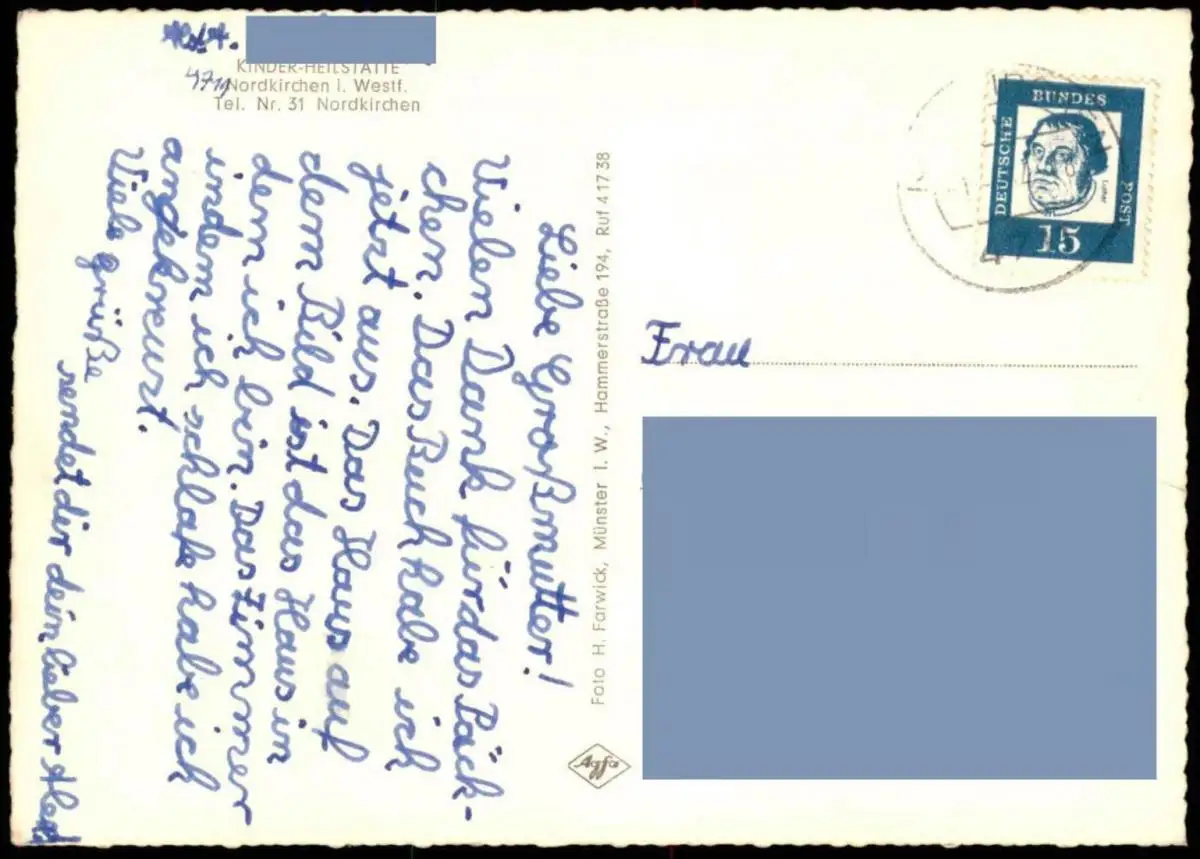 KINDER-HEILSTÄTTE
4711 Nordkirchen i. Westf.
Tel. Nr. 31 Nordkirchen
Liebe Großmutter!
Vielen Dank für das Päck-
chen. Das Buch habe ich
jetzt aus. Das Haus auf
dem Bild ist das Haus in
dem ich bin. Das Zimmer
indem ich schlafe habe ich
angekreuzt.
Viele grüße
sendet dir dein lieber
Foto H. Farwick, Münster I. W., Hammerstraße 194, Ruf 41738
Agfa
DEUTSCHE
BUNDES
POST
Luther
15
Frau